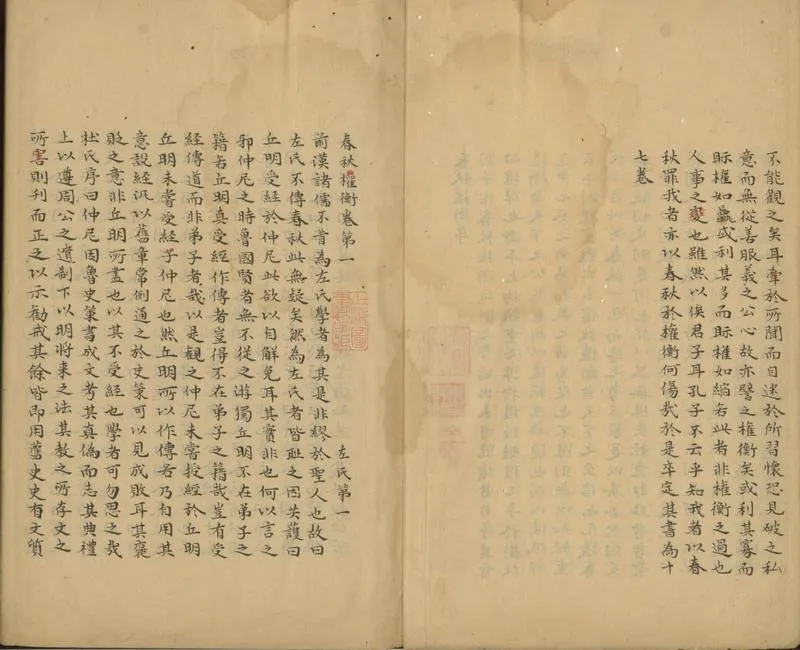 不能觀之矣耳牽於所聞而目迷於所習懷恐見破之私
意而無從善服義之公心故亦譬之權衡矣或利其寡而
眎權如贏或利其多而眎權如縮若此者非權衡之過也
人事之變也雖然以俟君子耳孔子不云乎知我者以春
秋罪我者亦以春秋於權衡何傷哉於是卒定其書為十
七卷
春秋權衡卷第一
左氏第一
前漢諸儒不肯為左氏學者為其是非繆於聖人也故曰
左氏不傳春秋此無疑矣然為左氏者皆恥之因共護曰
丘明受經於仲尼此欲以自解免耳其實非也何以言之
邪仲尼之時魯國賢者無不從之游獨丘明不在弟子之
籍若丘明真受經作傳者豈得不在弟子之籍哉豈有受
經傳道而非弟子者哉以是觀之仲尼未嘗授經於丘明
丘明未嘗受經于仲尼也然丘明所以作傳者乃自用其
意說經汎以舊章常例通之於史策可以見成敗耳其褒
貶之意非丘明所盡也以其不受經也學者可勿思之哉
杜氏序曰仲尼因魯史策書成文考其真偽而志其典禮
上以遵周公之遺制下以明將來之法其教之所存文之
所害則刊而正之以示勸戒其餘皆即用舊史史有文質